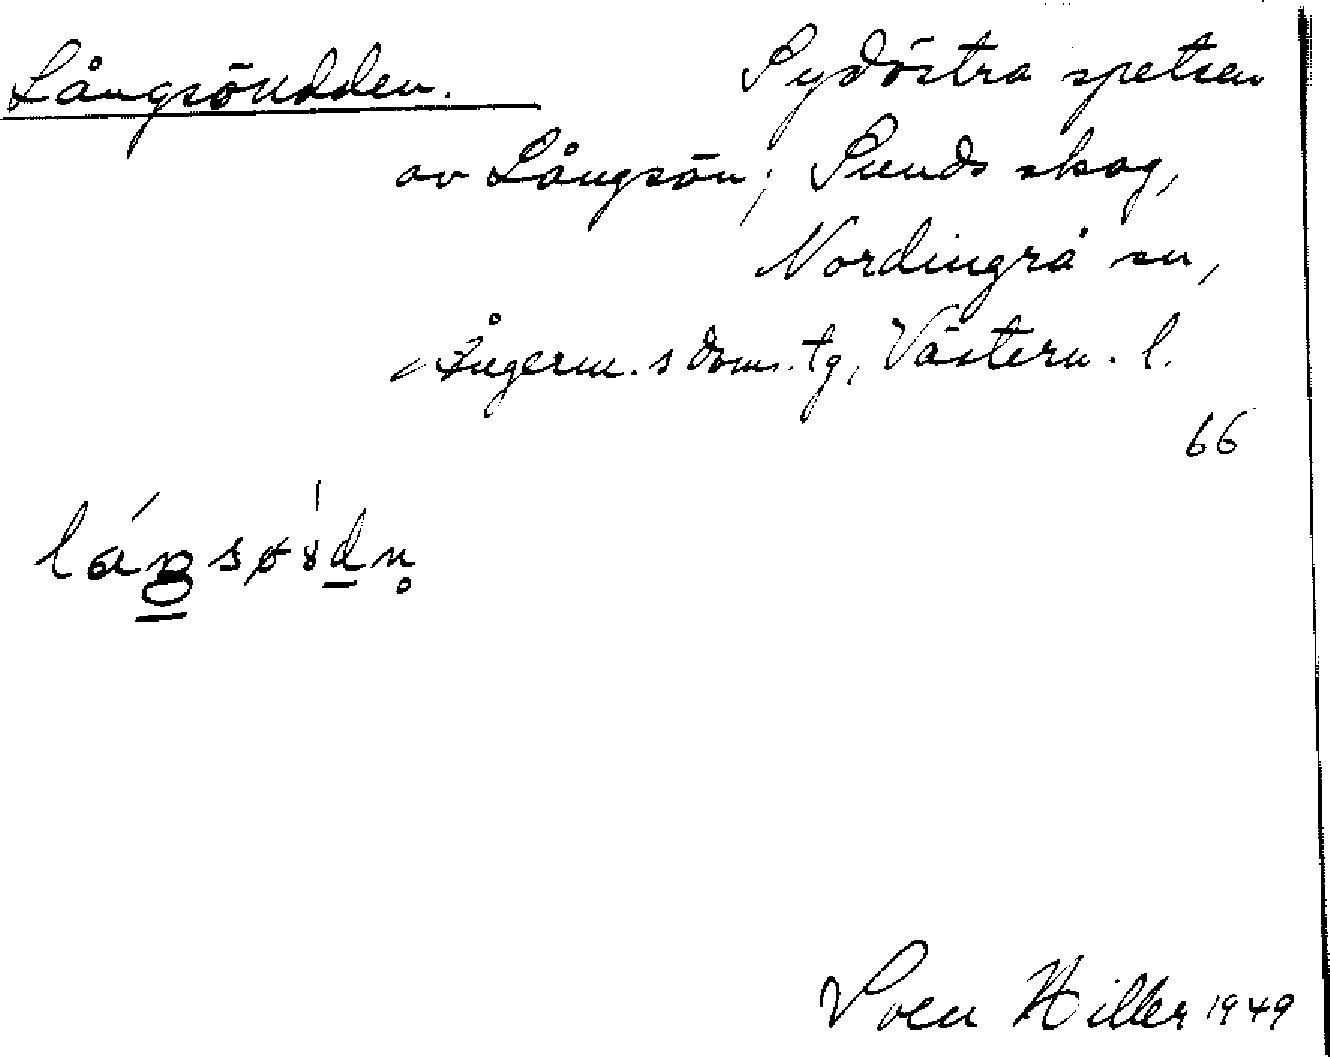 Långsöudden. Sydöstra spetsen
av Långsön; Sunds skog,
Nordingrå sn,
Ångerm.s doms.tg, Västern. l.
66
Sven Hiller 1949